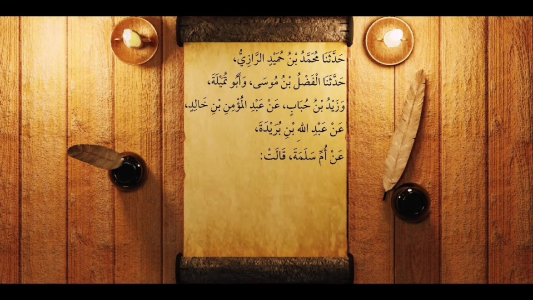 حَدَّثَنَا مُحَمَّدُ بْنُ حُمَيْدٍ الرَّازِيُّ،
حَدَّثَنَا الْفَضْلُ بْنُ مُوسَى، وَأَبُو تُمَيْلَةَ،
وَزَيْدُ بْنُ حُبَابٍ، عَنْ عَبْدِ الْمُؤْمِنِ بْنِ خَالِدٍ،
عَنْ عَبْدِ اللهِ بْنِ بُرَيْدَةَ،
عَنْ أُمِّ سَلَمَةَ، قَالَتْ: